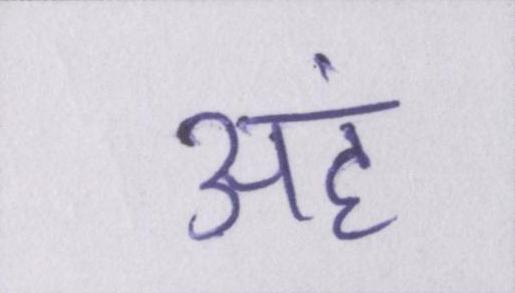 अहं